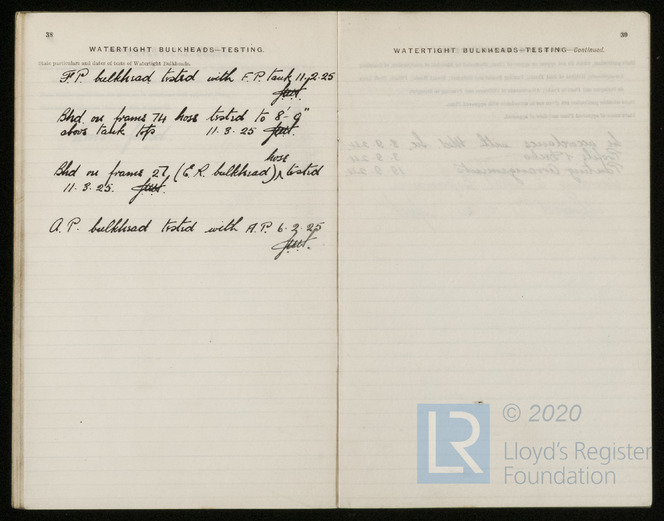 38
WATERTIGHT BULKHEADS—TESTING.
State particulars and dates of tests of Watertight Bulkheads.
F.P. bulkhead tested with F.P. tank 11.2.25
Bhd on frame 74 hose tested to 8'-9"
above tank top 11.3.25
hose
Bhd on frame 27, (E.R. bulkhead) ^ tested
11.3.25.
A.P. bulkhead tested with A.P. 6.2.25
39
WATERTIGHT BULKHEADS—TESTING—Continued.
© 2020
LR
Lloyd's Register
Foundation